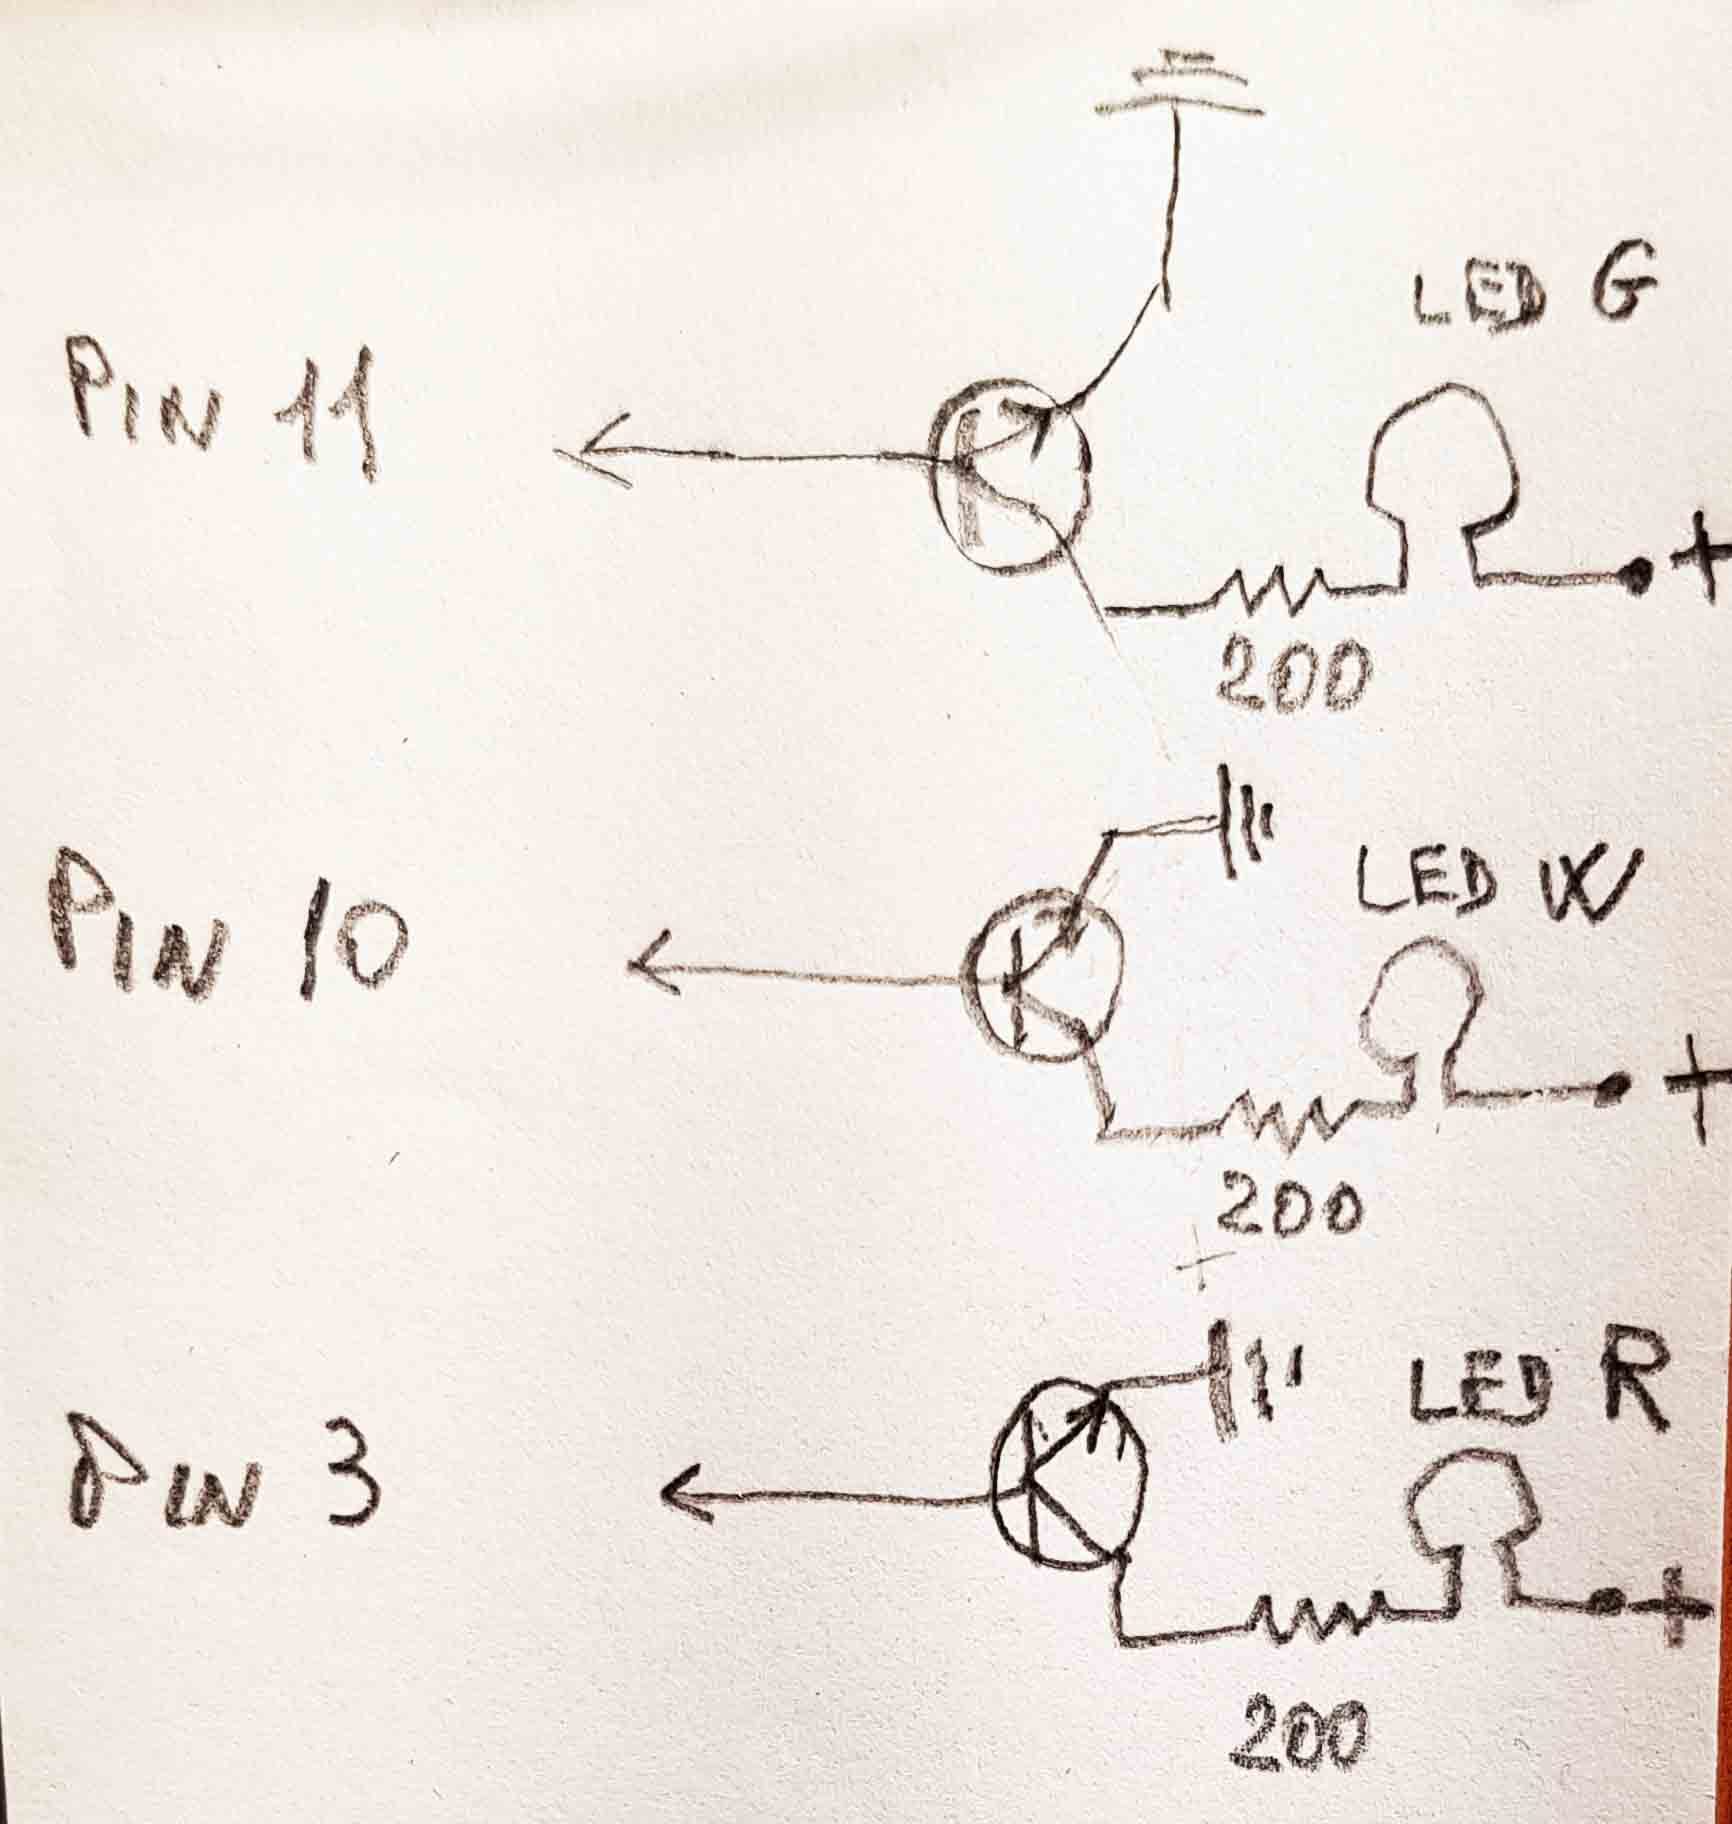 LED G
PIN 11
+
200
LED W
PIN 10
+
200
LED R
PIN 3
+
200